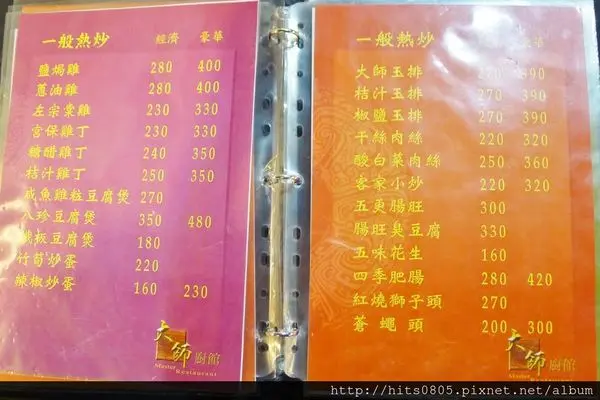 一般熱炒 經濟 豪華
鹽焗雞 280 400
蔥油雞 280 400
左宗棠雞 230 330
宮保雞丁 230 330
糖醋雞丁 240 350
桔汁雞丁 250 350
咸魚雞粒豆腐煲 270
八珍豆腐煲 350 480
鐵板豆腐煲 180
竹筍炒蛋 220
辣椒炒蛋 160 230
大師廚館
Master Restaurant
一般熱炒 豪華
大師玉排 270 390
桔汁玉排 270 390
椒鹽玉排 270 390
干絲肉絲 220 320
酸白菜肉絲 250 360
客家小炒 220 320
五更腸旺 300
腸旺臭豆腐 330
五味花生 160
四季肥腸 280 420
紅燒獅子頭 270
蒼蠅頭 200 300
大師廚館
Master Restaurant
http://hits0805.pixnet.net/album